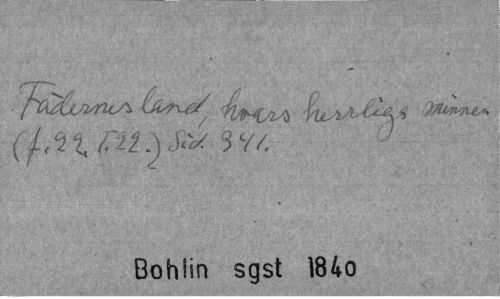 Fädernesland, hvars herrliga minnen
(f. 22, T. 22.) Sid. 341.
Bohlin sgst 1840